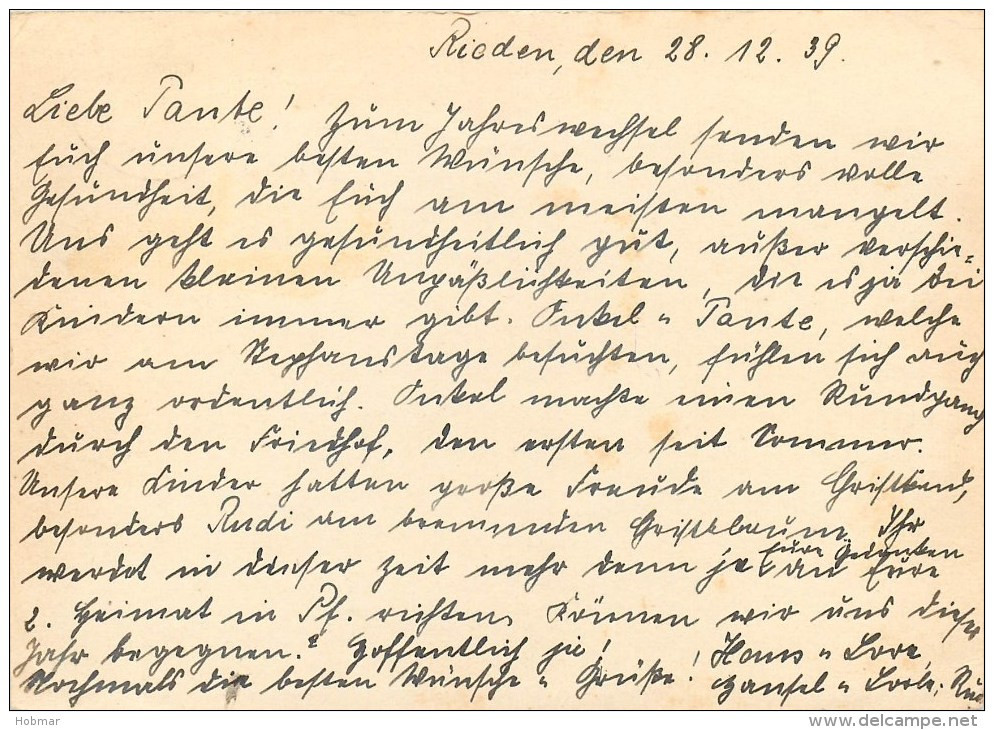 Rieden, den 28. 12. 39.
Liebe Tante! Zum Jahreswechsel senden wir
Euch unsere besten Wünsche, besonders volle
Gesundheit, die Euch am meisten mangelt.
Uns geht es gesundheitlich gut, außer verschie=
denen kleinen Unpäßlichkeiten, die es ja bei
Kindern immer gibt. Onkel u Tante, welche
wir am Stephanstage besuchten, fühlen sich auch
ganz ordentlich. Onkel machte einen Rundgang
durch den Friedhof, den ersten seit Sommer.
Unsere Kinder hatten große Freude am Christkind,
besonders Rudi am brennenden Christbaum. Ihr
werdet in dieser Zeit mehr denn je Eure Gedanken an Eure
2. Heimat in Pf. richten. Können wir uns dieses
Jahr begegnen.? Hoffentlich ja! Hans u Lore,
Nochmals die besten Wünsche u Grüße! Hansel u Lorle,
Hobmar
delcampe.net